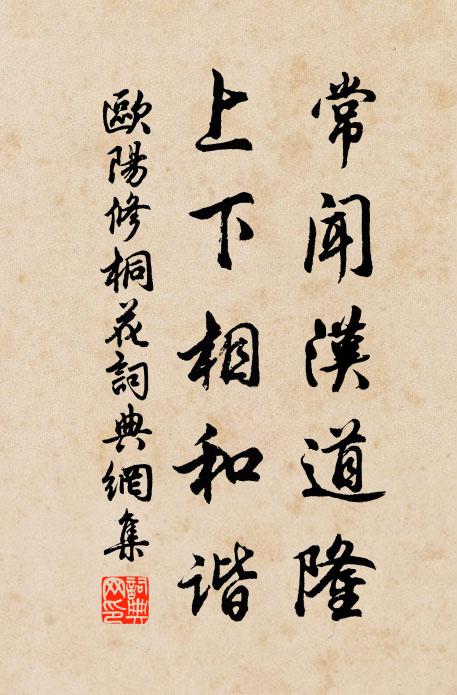 常聞漢道隆
上下相和谐
歐陽修桐花詞典網集
詞典網印